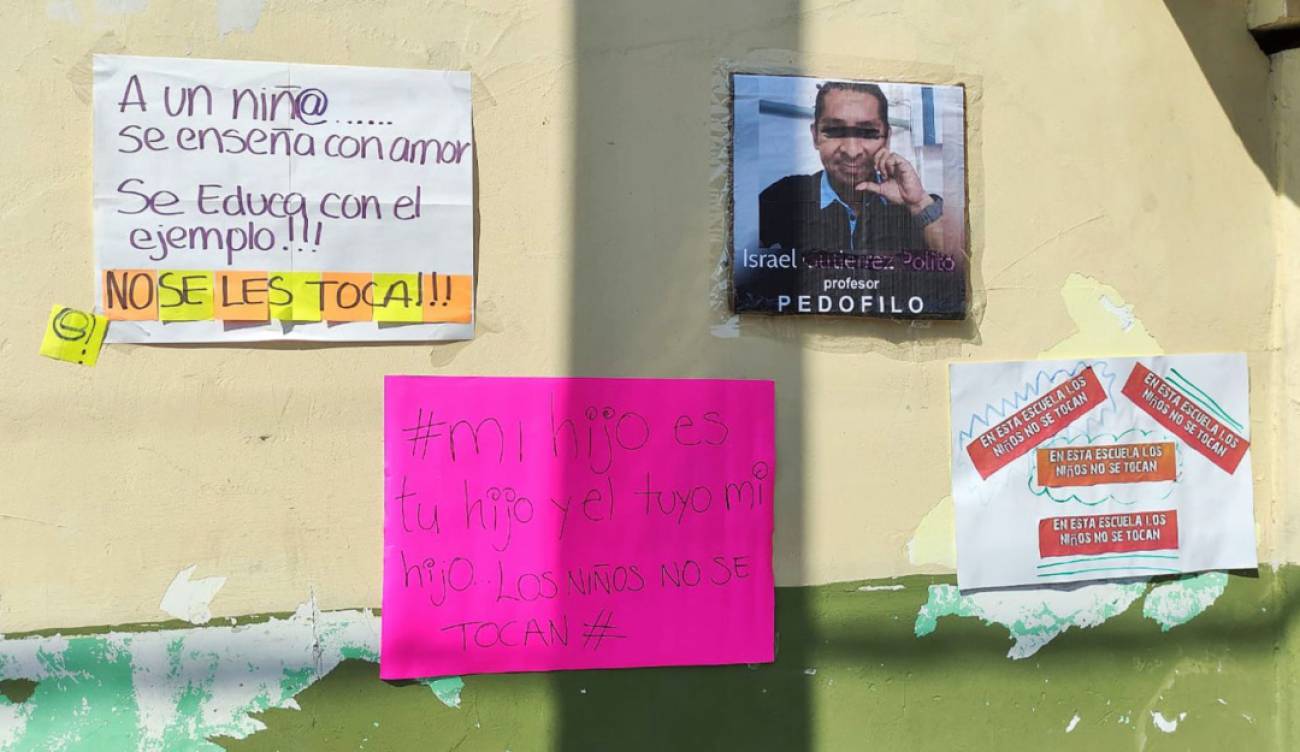 A un niñ@......
se enseña con amor
Se Educa con el
ejemplo!!!
NO SE LES TOCA!!!
Israel
profesor
PEDOFILO
#mi hijo es
tu hijo y el tuyo mi
hijo... LOS NIÑOS NO SE
TOCAN #
EN ESTA ESCUELA LOS
NIÑOS NO SE TOCAN
EN ESTA ESCUELA LOS
NIÑOS NO SE TOCAN
EN ESTA ESCUELA LOS
NIÑOS NO SE TOCAN
EN ESTA ESCUELA LOS
NIÑOS NO SE TOCAN